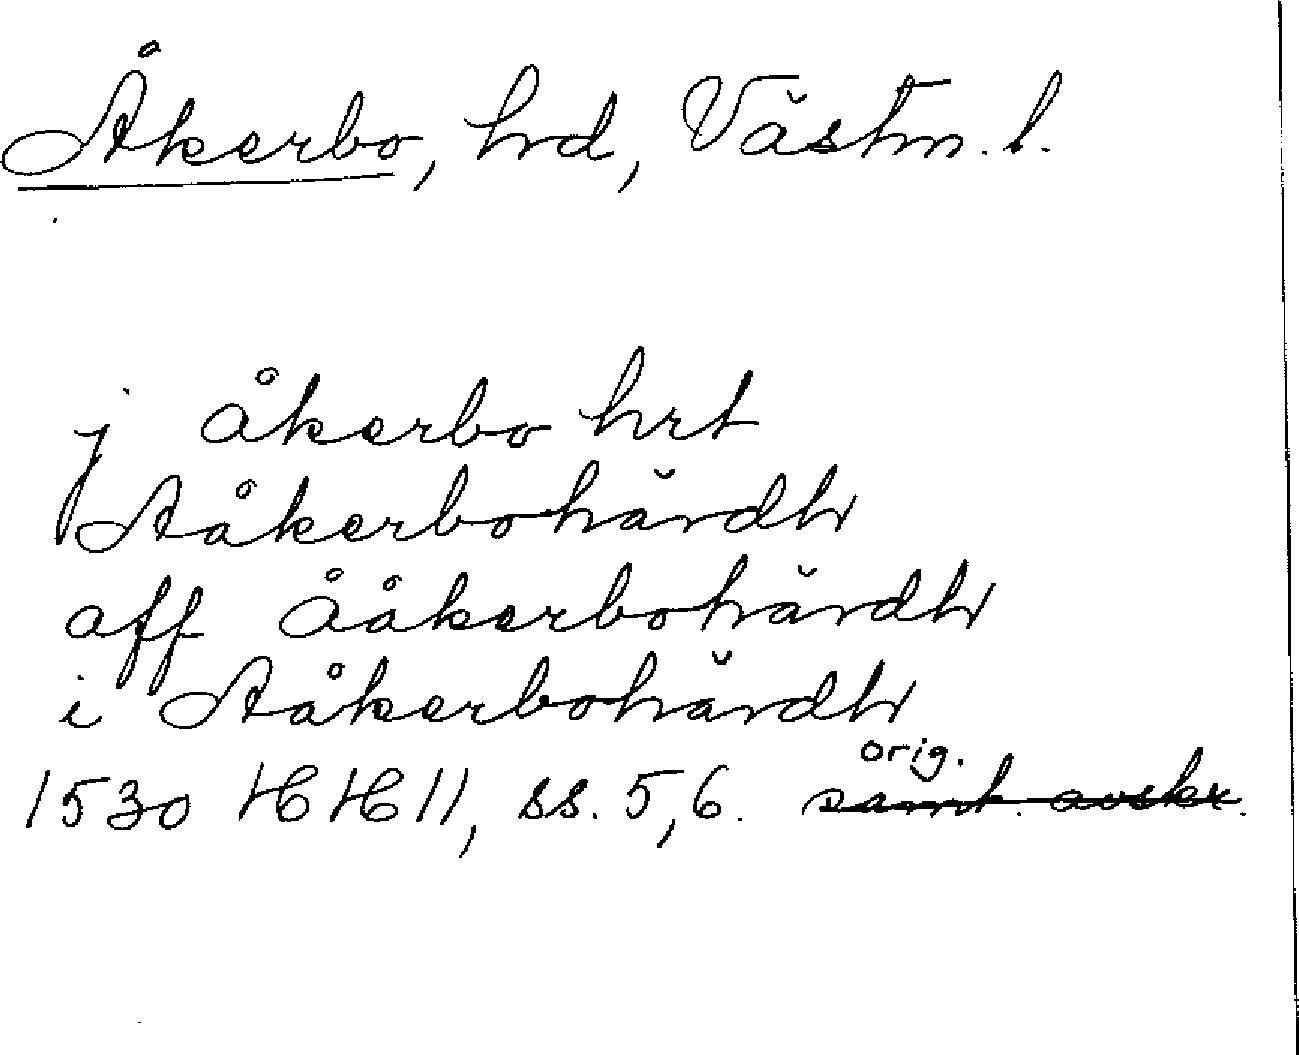 Åkerbo, hd, Västm. l.
j åkerbo hrt
Aåkerbohärdh
aff Ååkerbohärdh
i Aåkerbohärdh
orig.
1530 HH 11, ss. 5,6. samt. avskr.